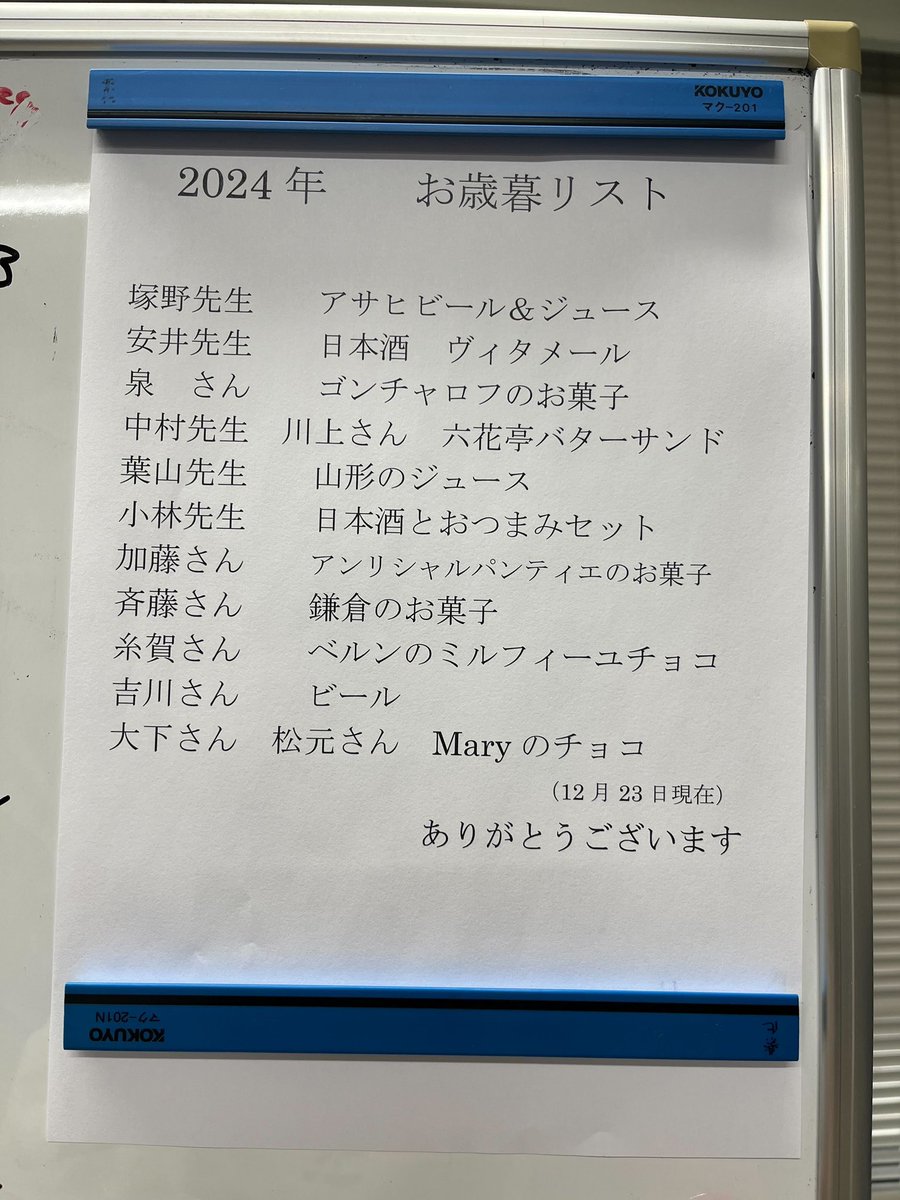 KOKUYO
マク-201
2024年　お歳暮リスト
塚野先生　アサヒビール＆ジュース
安井先生　日本酒　ヴィタメール
泉　さん　ゴンチャロフのお菓子
中村先生　川上さん　六花亭バターサンド
葉山先生　山形のジュース
小林先生　日本酒とおつまみセット
加藤さん　アンリシャルパンティエのお菓子
斉藤さん　鎌倉のお菓子
糸賀さん　ベルンのミルフィーユチョコ
吉川さん　ビール
大下さん　松元さん　Maryのチョコ
（12月23日現在）
ありがとうございます
KOKUYO
マク-201N